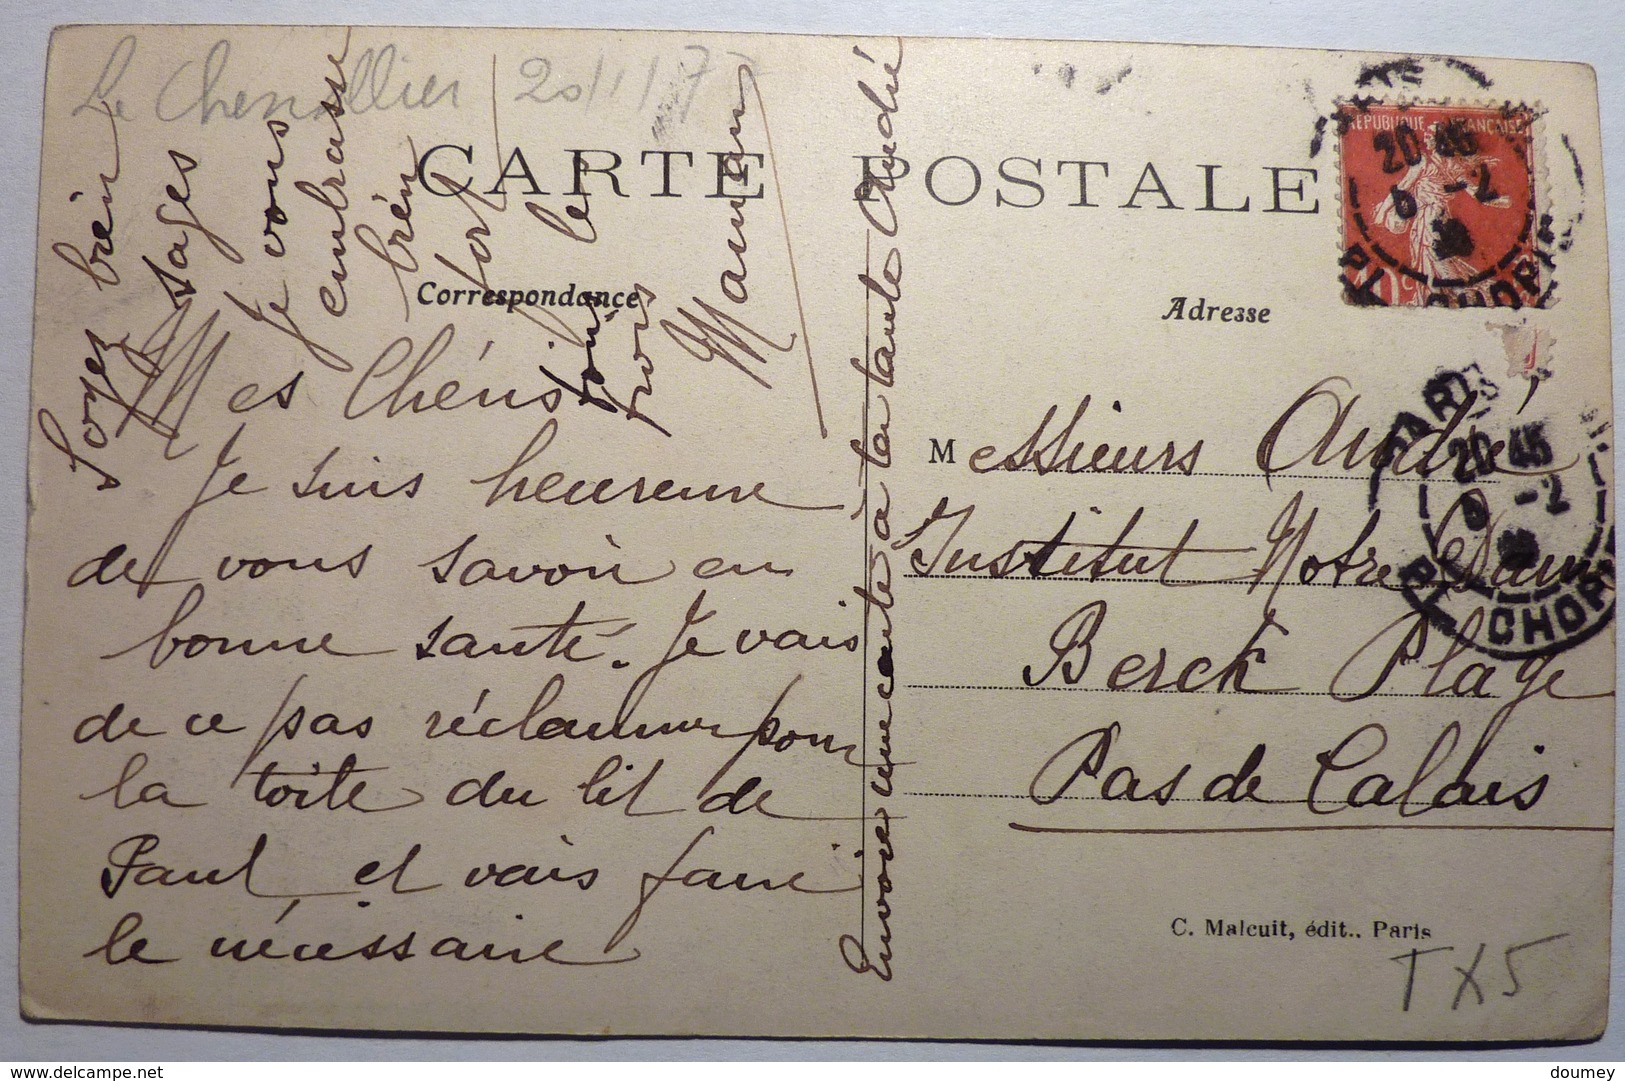 Le Chevallier 20/1/77
CARTE POSTALE
Correspondance
Adresse
REPUBLIQUE FRANÇAISE
20 45
6 -2
PL CHOPIN
PARIS
20 45
6 -2
PL CHOPIN
Mes Chéris
Je suis heureuse
de vous savoir en
bonne santé. Je vais
de ce pas réclamer pour
la toile du lit de
Paul, et vais faire
le nécessaire
Soyez bien
sages
Je vous
embrasse
bien
fort
tous les
trois
Maman
Envoie une carte à la tante André
Messieurs André
Institut Notre Dame
Berck Plage
Pas de Calais
C. Malcuit, édit.. Paris
TX5
doumey